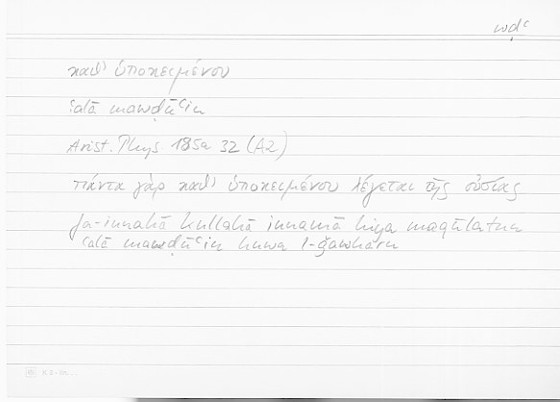 wḍʿ
καθ' ὑποκειμένου
ʿalā mawḍūʿin
Arist. Phys 185a 32 (A2)
πάντα γὰρ καθ' ὑποκειμένου λέγεται τῆς οὐσίας
fa-innahā kullahā innamā hiya maqūlatun
ʿalā mawḍūʿin huwa l-ǧawharu